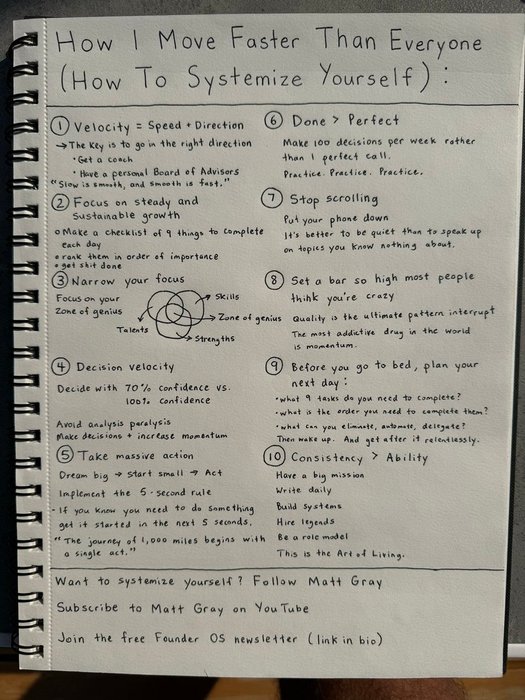 How I Move Faster Than Everyone
(How To Systemize Yourself) :
① Velocity = Speed + Direction
→ The key is to go in the right direction
• Get a coach
• Have a personal Board of Advisors
"Slow is smooth, and smooth is fast."
② Focus on steady and
sustainable growth
o Make a checklist of 9 things to complete
each day
o rank them in order of importance
o get shit done
③ Narrow your focus
Focus on your
zone of genius
Skills
Zone of genius
Talents
Strengths
④ Decision velocity
Decide with 70% confidence vs.
100% confidence
Avoid analysis paralysis
Make decisions + increase momentum
⑤ Take massive action
Dream big → Start small → Act
Implement the 5-second rule
- If you know you need to do something
get it started in the next 5 seconds.
"The journey of 1,000 miles begins with
a single act."
⑥ Done > Perfect
Make 100 decisions per week rather
than 1 perfect call.
Practice. Practice. Practice.
⑦ Stop scrolling
Put your phone down
It's better to be quiet than to speak up
on topics you know nothing about.
⑧ Set a bar so high most people
think you're crazy
Quality is the ultimate pattern interrupt
The most addictive drug in the world
is momentum.
⑨ Before you go to bed, plan your
next day:
• what 9 tasks do you need to complete?
• what is the order you need to complete them?
• what can you eliminate, automate, delegate?
Then wake up. And get after it relentlessly.
⑩ Consistency > Ability
Have a big mission
Write daily
Build systems
Hire legends
Be a role model
This is the Art of Living.
Want to systemize yourself? Follow Matt Gray
Subscribe to Matt Gray on YouTube
Join the free Founder OS newsletter (link in bio)